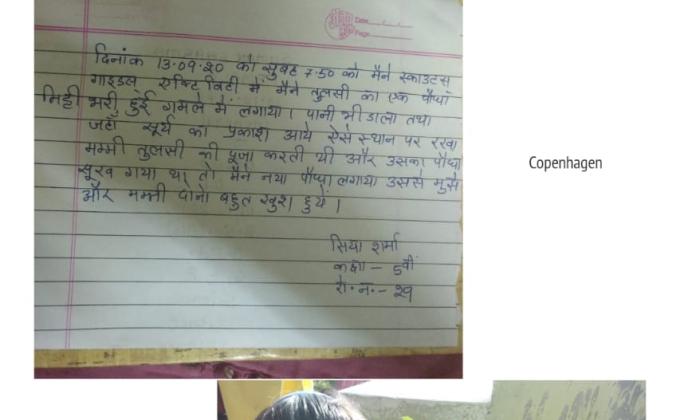 Date
Page
दिनांक 13.09.20 को सुबह 7.50 को मैने स्काउटस
गाइडस् एक्टिविटी में मैने तुलसी का एक पौधा
मिट्टी भरी हुई गमले में लगाया। पानी भी डाला तथा
जहाँ सूर्य का प्रकाश आये ऐसे स्थान पर रखा
मम्मी तुलसी की पूजा करती थी और उसका पौधा
सूख गया था तो मैने नया पौधा लगाया उससे मुझे
और मम्मी दोनो बहुत खुश हुये।
सिया शर्मा
कक्षा - 5वीं
रो. न. - 29
Copenhagen